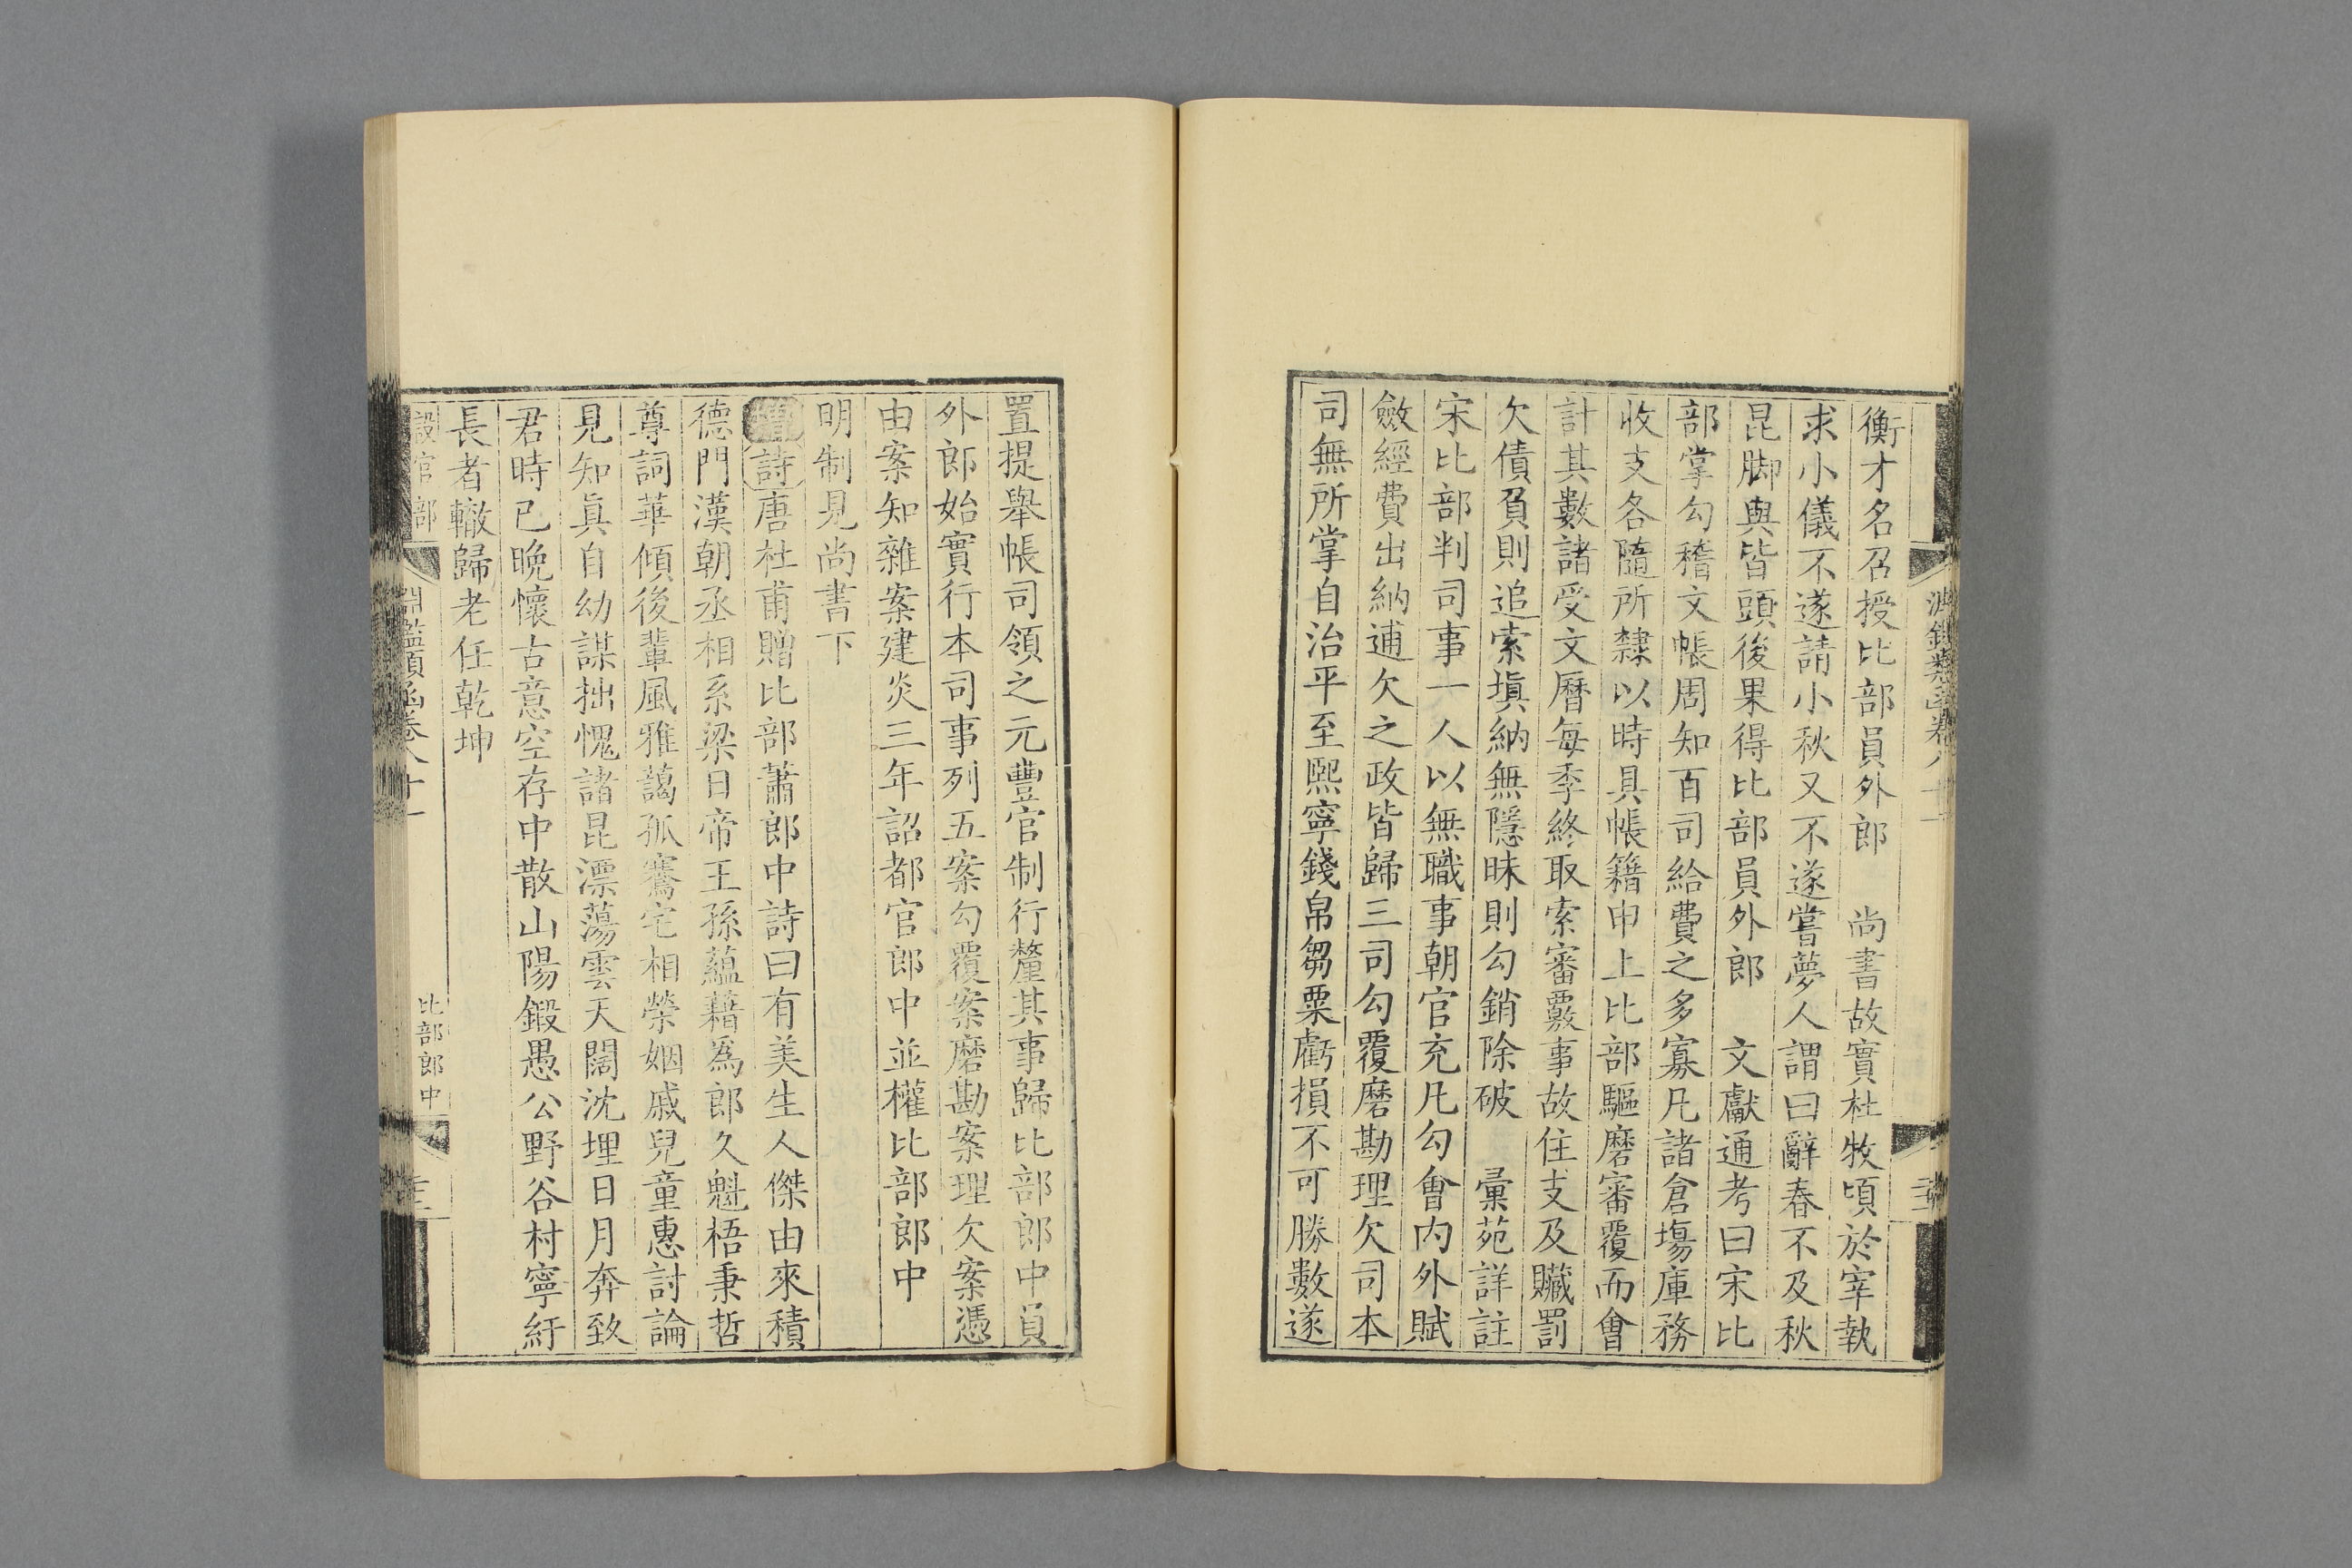 衡才名召授比部員外郎　尚書故實杜牧頃於宰執
求小儀不遂請小秋又不遂嘗夢人謂曰辭春不及秋
昆脚與皆頭後果得比部員外郎　文獻通考曰宋比
部掌勾稽文帳周知百司給費之多寡凡諸倉場庫務
收支各隨所隸以時具帳籍申上比部驅磨審覆而會
計其數諸受文曆每季終取索審覈事故住支及贓罰
欠債負則追索塡納無隱昧則勾銷除破　彙苑詳註
宋比部判司事一人以無職事朝官充凡勾會内外賦
斂經費出納逋欠之政皆歸三司勾覆磨勘理欠司本
司無所掌自治平至熙寧錢帛芻粟虧損不可勝數遂
置提舉帳司領之元豐官制行釐其事歸比部郎中員
外郎始實行本司事列五案勾覆案磨勘案理欠案憑
由案知雜案建炎三年詔都官郎中並權比部郎中
明制見尚書下
增詩唐杜甫贈比部蕭郎中詩曰有美生人傑由來積
德門漢朝丞相系梁日帝王孫蘊藉爲郎久魁梧秉哲
尊詞華傾後輩風雅藹孤騫宅相榮姻戚兒童惠討論
見知真自幼謀拙愧諸昆漂蕩雲天闊沈埋日月奔致
君時已晚懷古意空存中散山陽鍛愚公野谷村寧紆
長者轍歸老任乾坤
設官部
淵鑑類函卷八十一
比部郎中